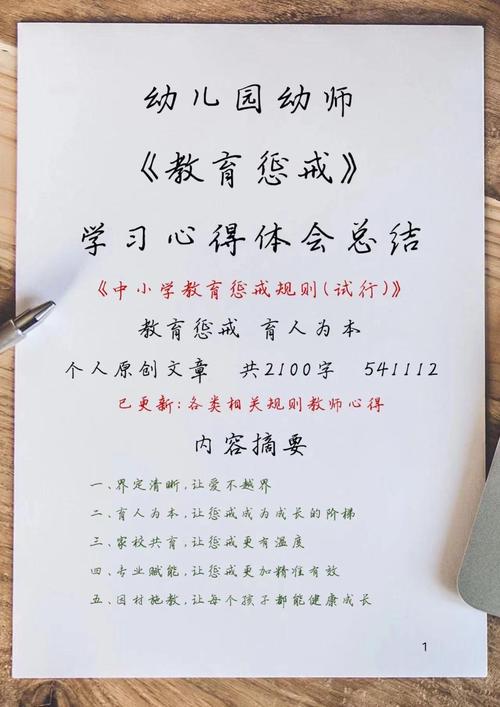 幼儿园幼师
《教育惩戒》
学习心得体会总结
《中小学教育惩戒规则(试行)》
教育惩戒 育人为本
个人原创文章 共2100字 541112
已更新:各类相关规则教师心得
内容摘要
一、界定清晰,让爱不越界
二、育人为本,让惩戒成为成长的阶梯
三、家校共育,让惩戒更有温度
四、专业赋能,让惩戒更加精准有效
五、因材施教,让每个孩子都能健康成长
1